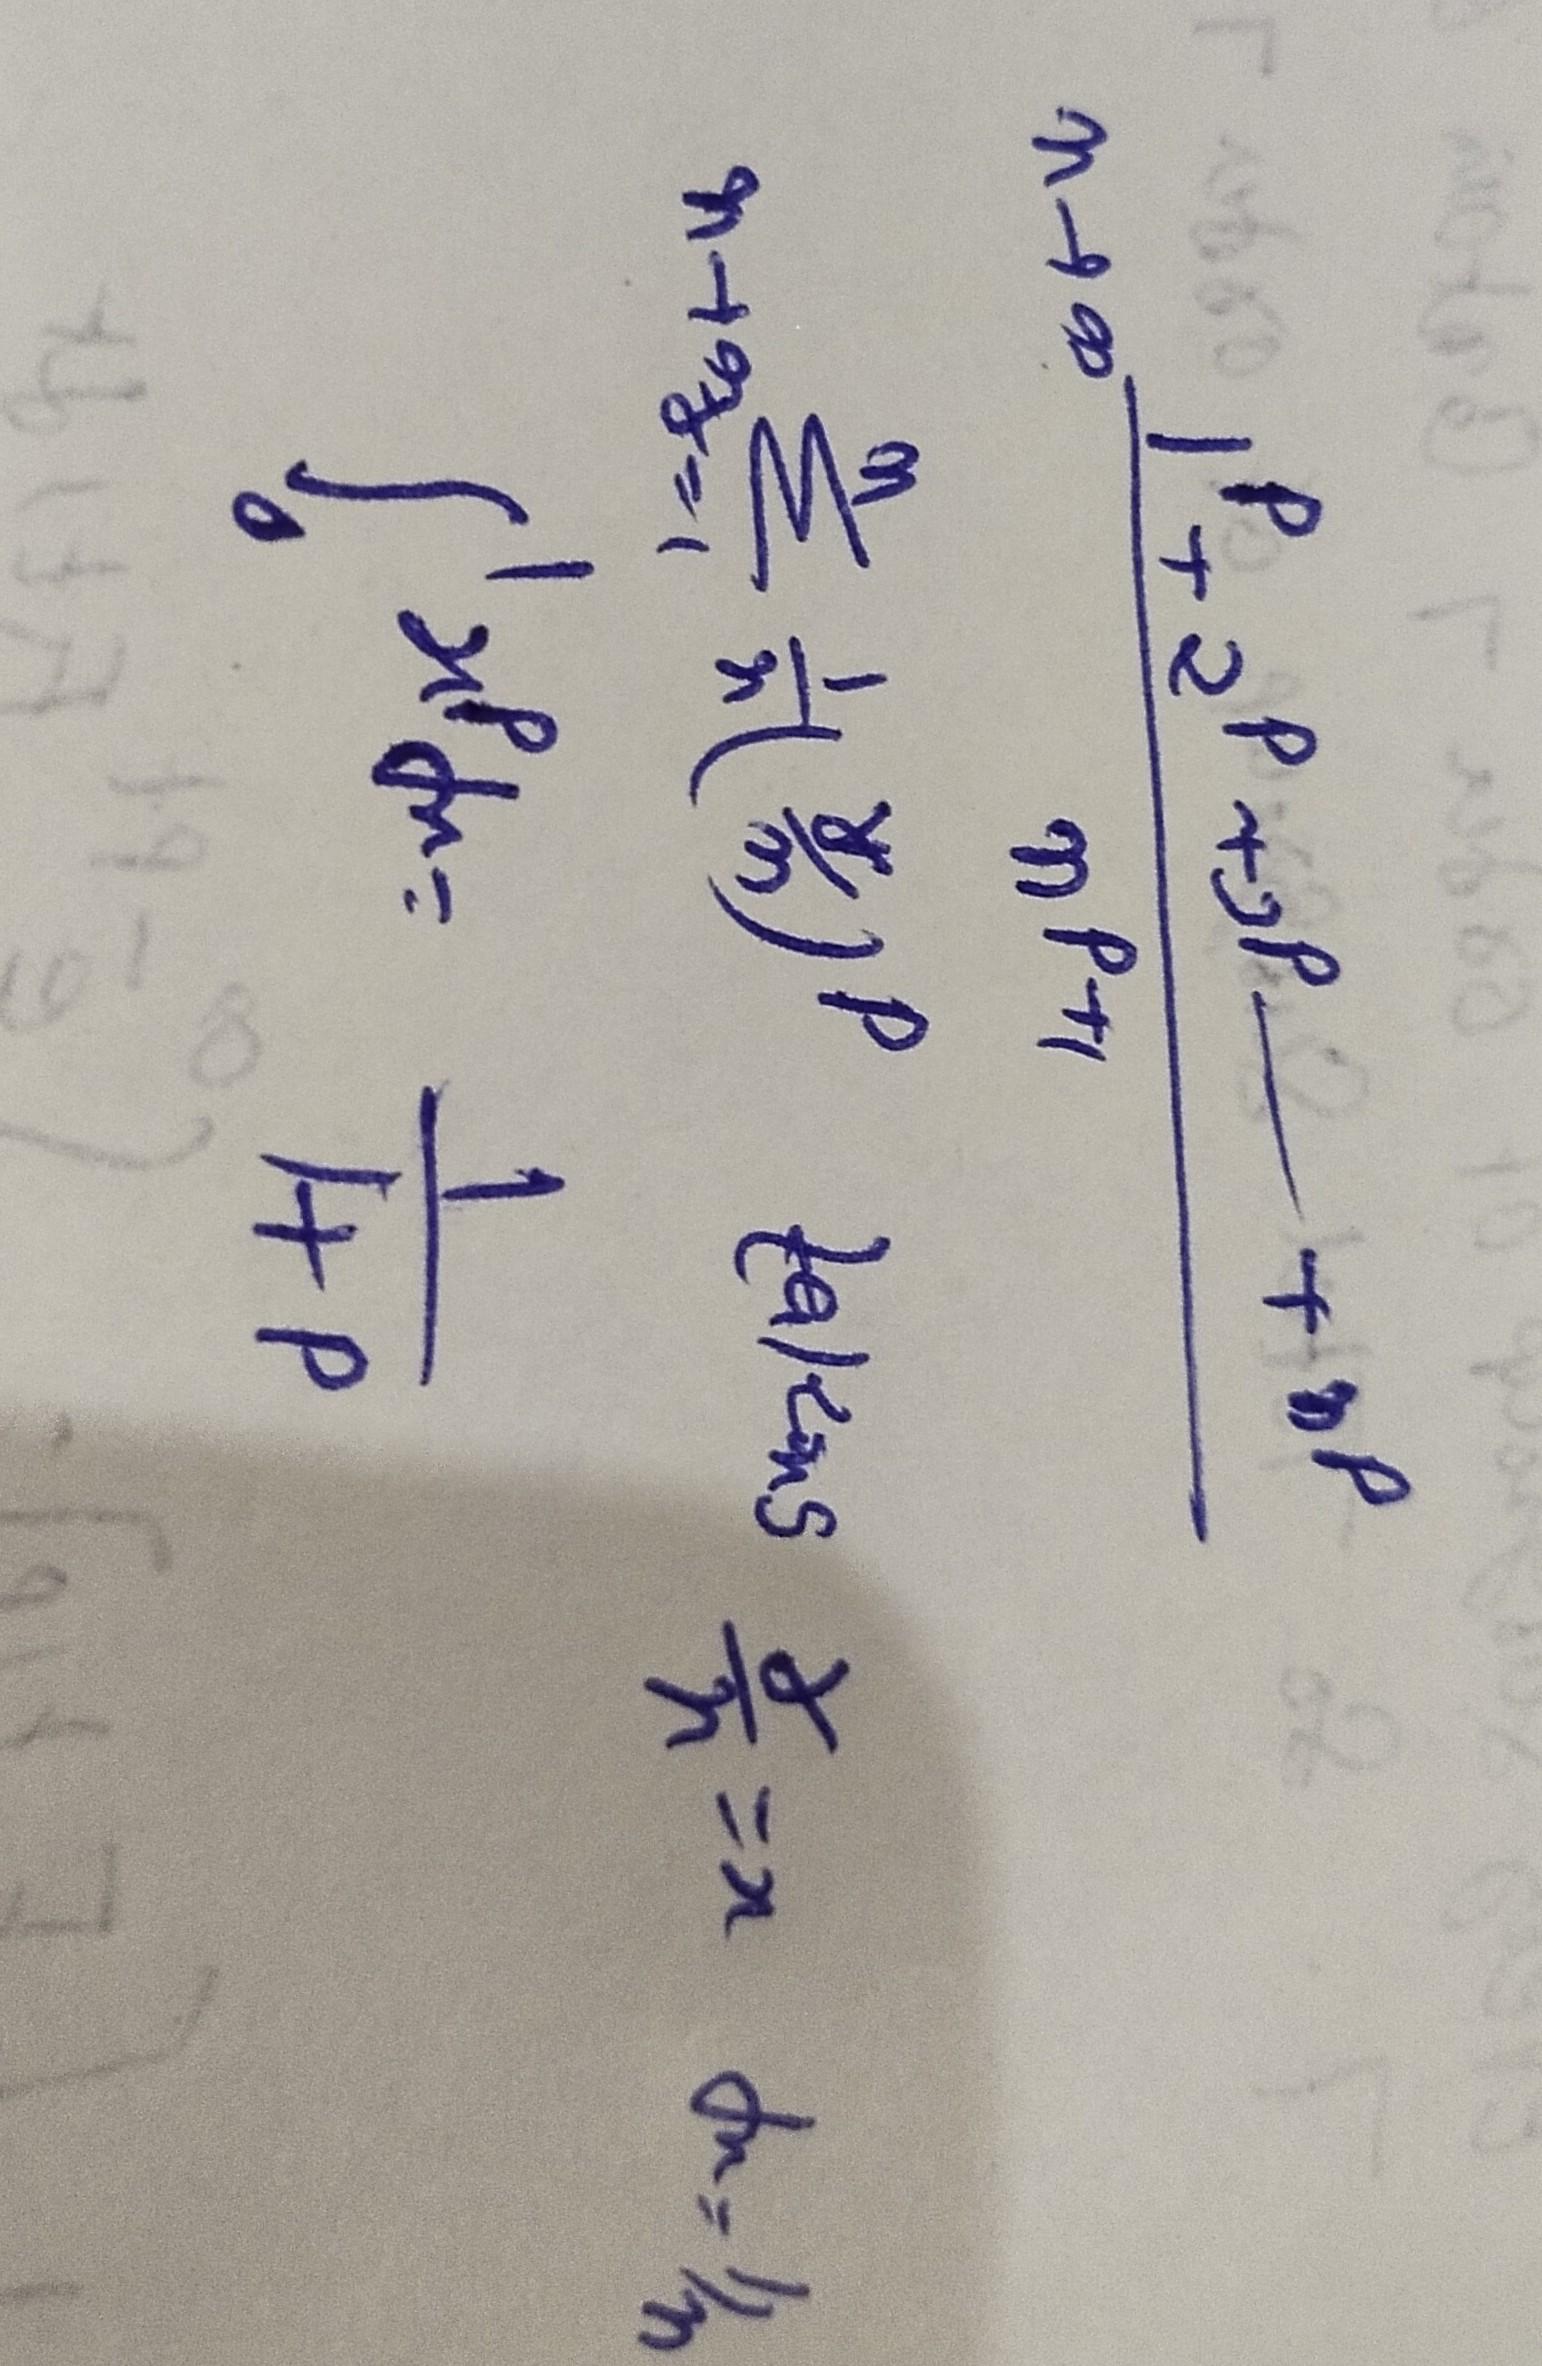 n→∞ (1^p + 2^p + 3^p — + n^p) / n^{p+1}
n→∞ ∑_{r=1}^{n} 1/n (r/n)^p r/n = x dn = 1/n
∫_0^1 x^p dn = 1/(1+p)